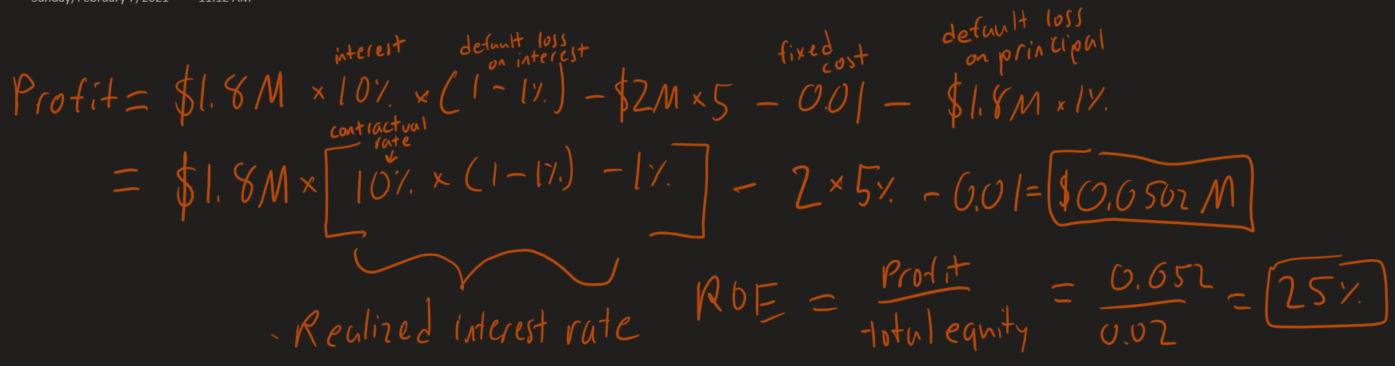 Sunday, February 7, 2021 11:12 AM
interest
default loss on interest
fixed cost
default loss on principal
Profit = $1.8M × 10% × (1 - 1%) - $2M × 5 - 0.01 - $1.8M × 1%
contractual rate
= $1.8M × [10% × (1 - 1%) - 1%] - 2 × 5% - 0.01 = $0.0502 M
Realized interest rate
ROE = Profit / total equity = 0.052 / 0.02 = 25%